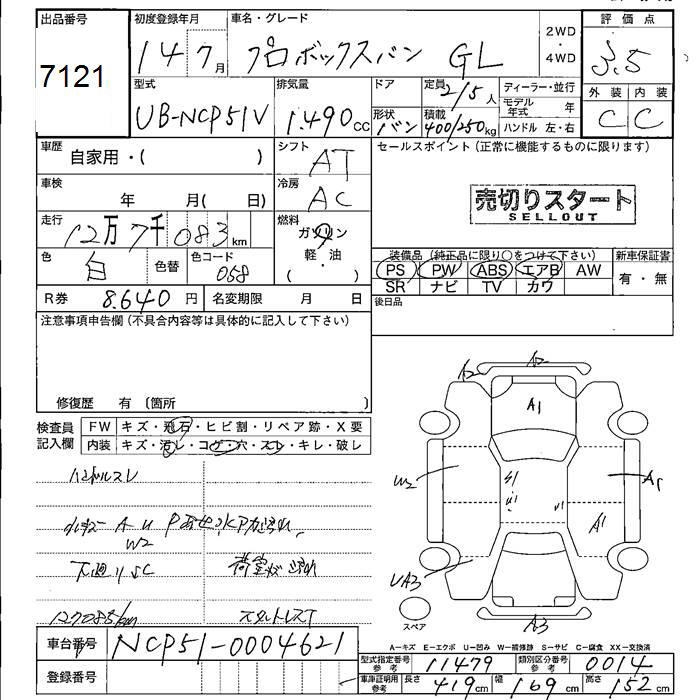 出品番号
7121
初度登録年月
14 7月
車名・グレード
プロボックスバン GL
2WD
・
4WD
評価点
3.5
外装 内装
C C
型式
UB-NCP51V
排気量
1.490cc
ドア
形状
バン
定員
2/5人
積載
400/250kg
ディーラー・並行
モデル年式 年
ハンドル 左・右
車歴
自家用・( )
シフト
AT
車検
年 月( 日)
冷房
AC
走行
12万7千083km
燃料
ガソリン
軽・油
( )
色
白
色替
色コード
058
R券 8.640円
名変期限 月 日
セールスポイント(正常に機能するものに限ります)
売切りスタート
SELLOUT
装備品(純正品に限り○をつけて下さい)
PS PW ABS エアB AW
SR ナビ TV カワ
新車保証書
有・無
後日品
注意事項申告欄(不具合内容等は具体的に記入して下さい)
修復歴 有(箇所 )
検査員記入欄
FW キズ・飛石・ヒビ割・リペア跡・X要
内装 キズ・汚レ・コゲ・穴・スレ・キレ・破レ
ハンドルスレ
A U
W2
下廻りSC
127083km
A2
A2
A1
W2
A1
A1
UA3
A3
スペア
A−キズ E−エクボ U−凹み W−補修跡 S−サビ C−腐食 XX−交換済
車台番号 NCP51-0004621
登録番号
型式指定番号参考 11479
類別区分番号参考 0014
車庫証明用参考 長さ 419cm 幅 169cm 高さ 152cm